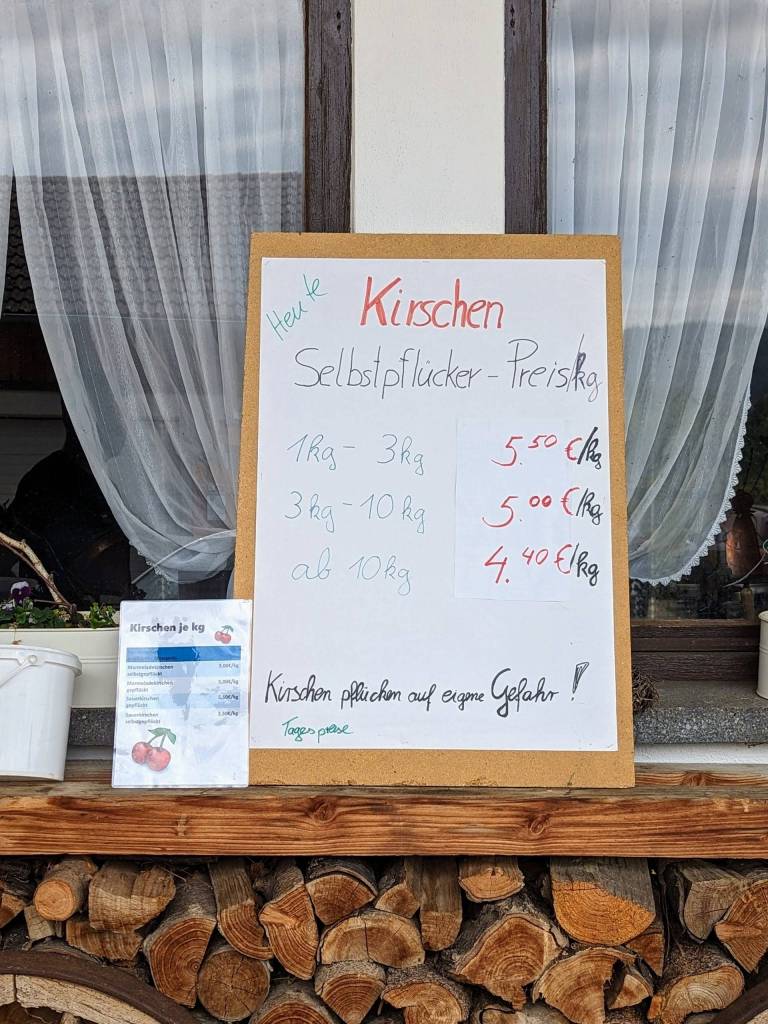 Heute
Kirschen
Selbstpflücker-Preis/kg
1kg - 3kg 5.50 €/kg
3kg - 10kg 5.00 €/kg
ab 10kg 4.40 €/kg
Kirschen pflücken auf eigene Gefahr!
Tagespreise
Kirschen je kg
Marmeladekirschen
selbstgepflückt
Marmeladekirschen
gepflückt
Sauerkirschen
selbstgepflückt
Sauerkirschen
gepflückt